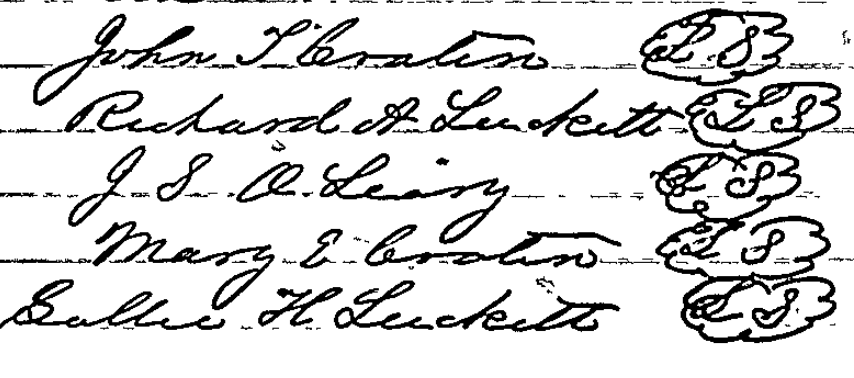 John T Cratin L. S
Richard A Luckett L S
J S O Leary L S
Mary E Cratin L S
Sallie H Luckett L S